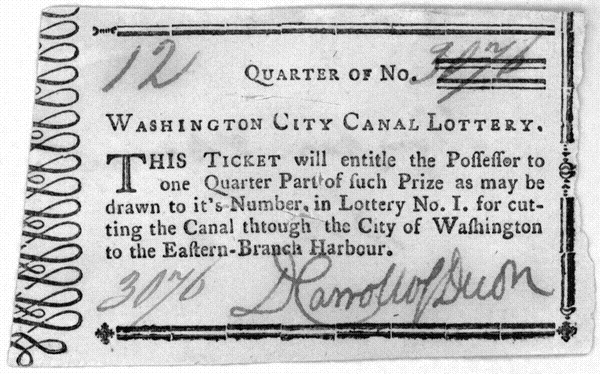 12 QUARTER OF NO. 3076
WASHINGTON CITY CANAL LOTTERY.
THIS TICKET will entitle the Poſſeſſor to
one Quarter Part of ſuch Prize as may be
drawn to it's Number, in Lottery No. I. for cut-
ting the Canal thtough the City of Waſhington
to the Eaſtern-Branch Harbour.
3076 D Carroll of